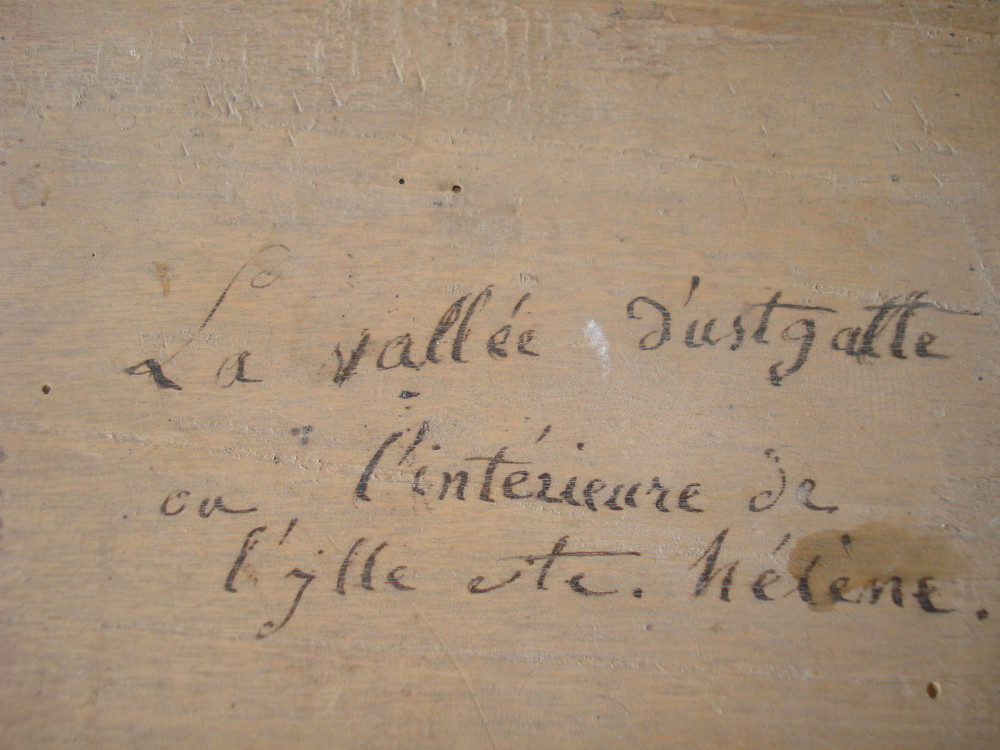 La vallée d'ustgatte
ou l'intérieure de
l'ylle ste. hélène.